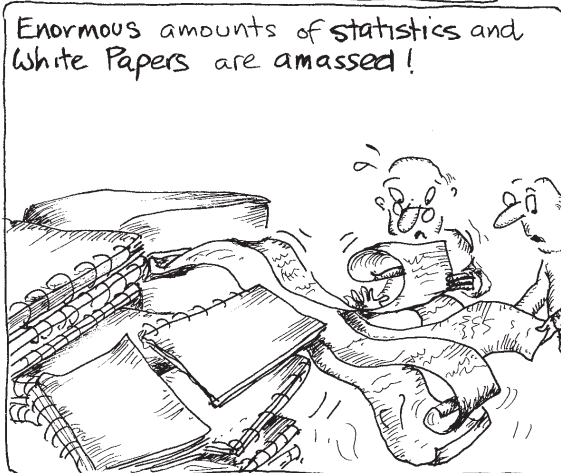 Enormous amounts of statistics and
White Papers are amassed!